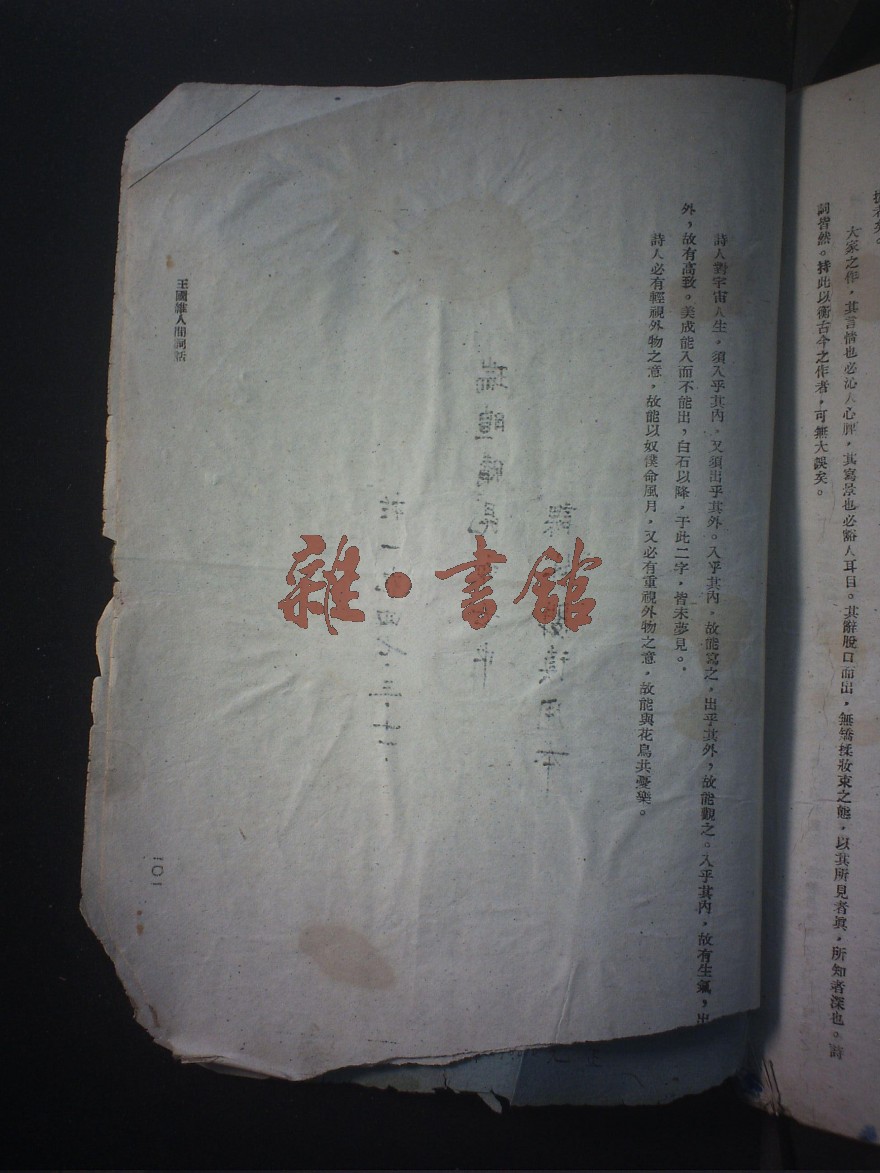 據者矣。
大家之作，其言情也必沁人心脾，其寫景也必豁人耳目。其辭脫口而出，無矯揉妝束之態，以其所見者眞，所知者深也。詩
詞皆然。持此以衡古今之作者，可無大誤矣。
詩人對宇宙人生，須入乎其內，又須出乎其外。入乎其內，故能寫之，出乎其外，故能觀之。入乎其內，故有生氣，出
外，故有高致。美成能入而不能出，白石以降，于此二字，皆未夢見。
詩人必有輕視外物之意，故能以奴僕命風月，又必有重視外物之意，故能與花鳥共憂樂。
一九四七·三·十二
王國維人間詞話
一〇一
雜·書館